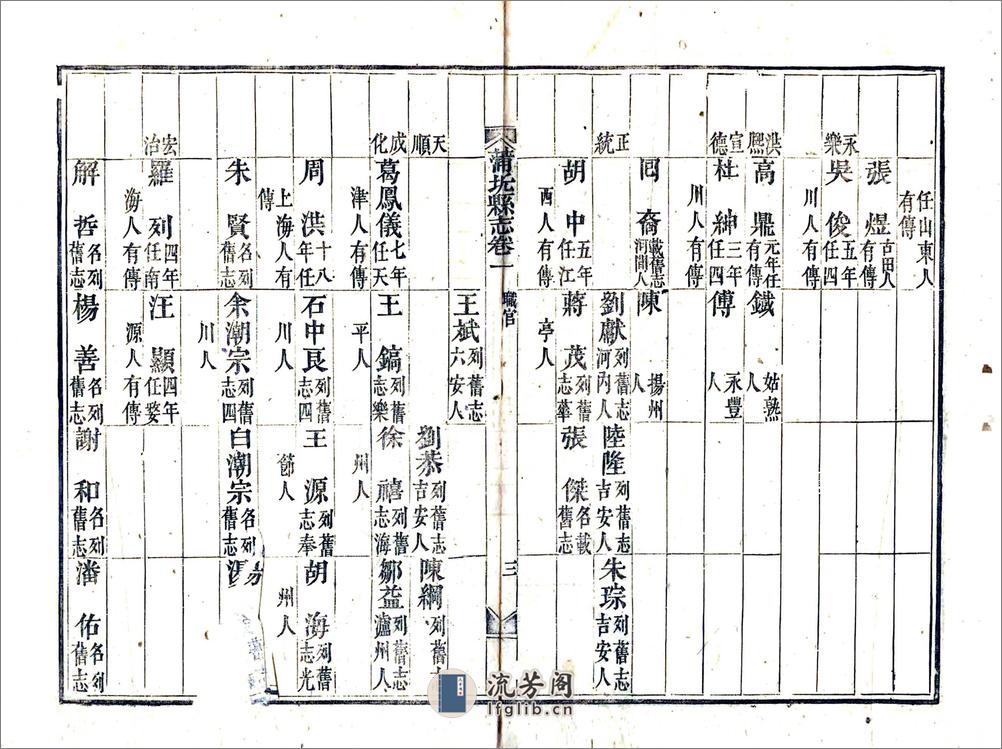 任山東人有傳
張煜 古田人有傳
永樂 吳俊 五年任四川人有傳
洪熙 高鼎 元年任有傳 鐵 姑熟人
宣德 杜紳 三年任四川人有傳 傅 永豐人
回裔 載舊志河間人 陳 揚州人
正統 劉獻 列舊志河內人 陸隆 列舊志吉安人 朱琮 列舊志吉安人
胡中 五年任江西人有傳 蔣茂 列舊志華亭人 張傑 名載舊志
蒲圻縣志卷一 職官 三
王斌 列舊志六安人
天順 劉恭 列舊志吉安人 陳綱 列舊志
成化 葛鳳儀 七年任天津人有傳 王鎬 列舊志樂平人 徐禧 列舊志海州人 鄒益 列舊志瀘州人
周洪 十八年任上海人有傳 石中良 列舊志四川人 王源 列舊志奉節人 胡海 列舊志光州人
朱賢 名列舊志 余潮宗 列舊志四川人 白潮宗 名列舊志
宏治 羅列 四年任南海人有傳 汪顯 四年任婺源人有傳
解哲 名列舊志 楊善 名列舊志 謝和 名列舊志 潘佑 名列舊志
流芳阁
lfglib.cn